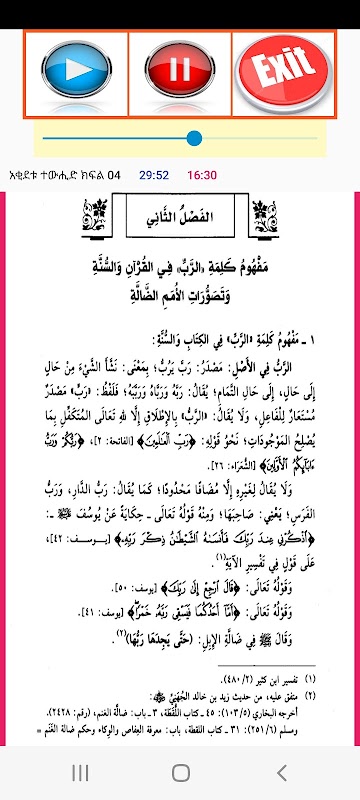 Exit
አቂደቱ ተውሒድ ክፍል 04 29:52 16:30
الفَصْلُ الثَّانِي
مَفْهُومُ كَلِمَةِ «الرَّبِّ» فِي القُرْآنِ وَالسُّنَّةِ
وَتَصَوُّرَاتِ الأُمَمِ الضَّالَّةِ
١ ـ مَفْهُومُ كَلِمَةِ «الرَّبِّ» فِي الكِتَابِ وَالسُّنَّةِ:
الرَّبُّ فِي الأَصْلِ: مَصْدَرُ: رَبَّ يَرُبُّ؛ بِمَعْنَى: نَشَّأَ الشَّيْءَ مِنْ حَالٍ
إِلَى حَالٍ، إِلَى حَالِ التَّمَامِ؛ يُقَالُ: رَبَّهُ وَرَبَّاهُ وَرَبَّبَهُ؛ فَلَفْظُ: «رَبٍّ» مَصْدَرٌ
مُسْتَعَارٌ لِلْفَاعِلِ، وَلَا يُقَالُ: «الرَّبُّ» بِالإِطْلَاقِ إِلَّا لِلَّهِ تَعَالَى المُتَكَفِّلِ بِمَا
يُصْلِحُ المَوْجُودَاتِ؛ نَحْوُ قَوْلِهِ: ﴿رَبِّ الْعَالَمِينَ﴾ [الفاتحة: ٢]، ﴿رَبُّكُمْ وَرَبُّ
ءَابَآئِكُمُ الْأَوَّلِينَ﴾ [الشُّعَرَاء: ٢٦].
وَلَا يُقَالُ لِغَيْرِهِ إِلَّا مُضَافًا مَحْدُودًا؛ كَمَا يُقَالُ: رَبُّ الدَّارِ، وَرَبُّ
الفَرَسِ؛ يَعْنِي: صَاحِبَهَا؛ وَمِنْهُ قَوْلُهُ تَعَالَى ـ حِكَايَةً عَنْ يُوسُفَ ﷺ ـ:
﴿اذْكُرْنِي عِندَ رَبِّكَ فَأَنسَاهُ الشَّيْطَانُ ذِكْرَ رَبِّهِ﴾ [يوسف: ٤٢]،
عَلَى قَوْلٍ فِي تَفْسِيرِ الآيَةِ(١).
وَقَوْلُهُ تَعَالَى: ﴿قَالَ ارْجِعْ إِلَى رَبِّكَ﴾ [يوسف: ٥٠].
وَقَوْلُهُ تَعَالَى: ﴿أَمَّا أَحَدُكُمَا فَيَسْقِي رَبَّهُ خَمْرًا﴾ [يوسف: ٤١].
وَقَالَ ﷺ فِي ضَالَّةِ الإِبِلِ: (حَتَّى يَجِدَهَا رَبُّهَا)(٢).
(١) تفسير ابن كثير (٤٨٠/٢).
(٢) متفق عليه، من حديث زيد بن خالد الجُهَنِيِّ
أخرجه البخاري (١٠٣/٥): ٤٥ ـ كتاب اللُّقَطة، ٣ ـ باب: ضالَّة الغنم، (رقم: ٢٤٢٨).
ومسلم (٢٥١/٦): ٣١ ـ كتاب اللقطة، باب: معرفة العِفاص والوِكاء وحكم ضالة الغَنَم =